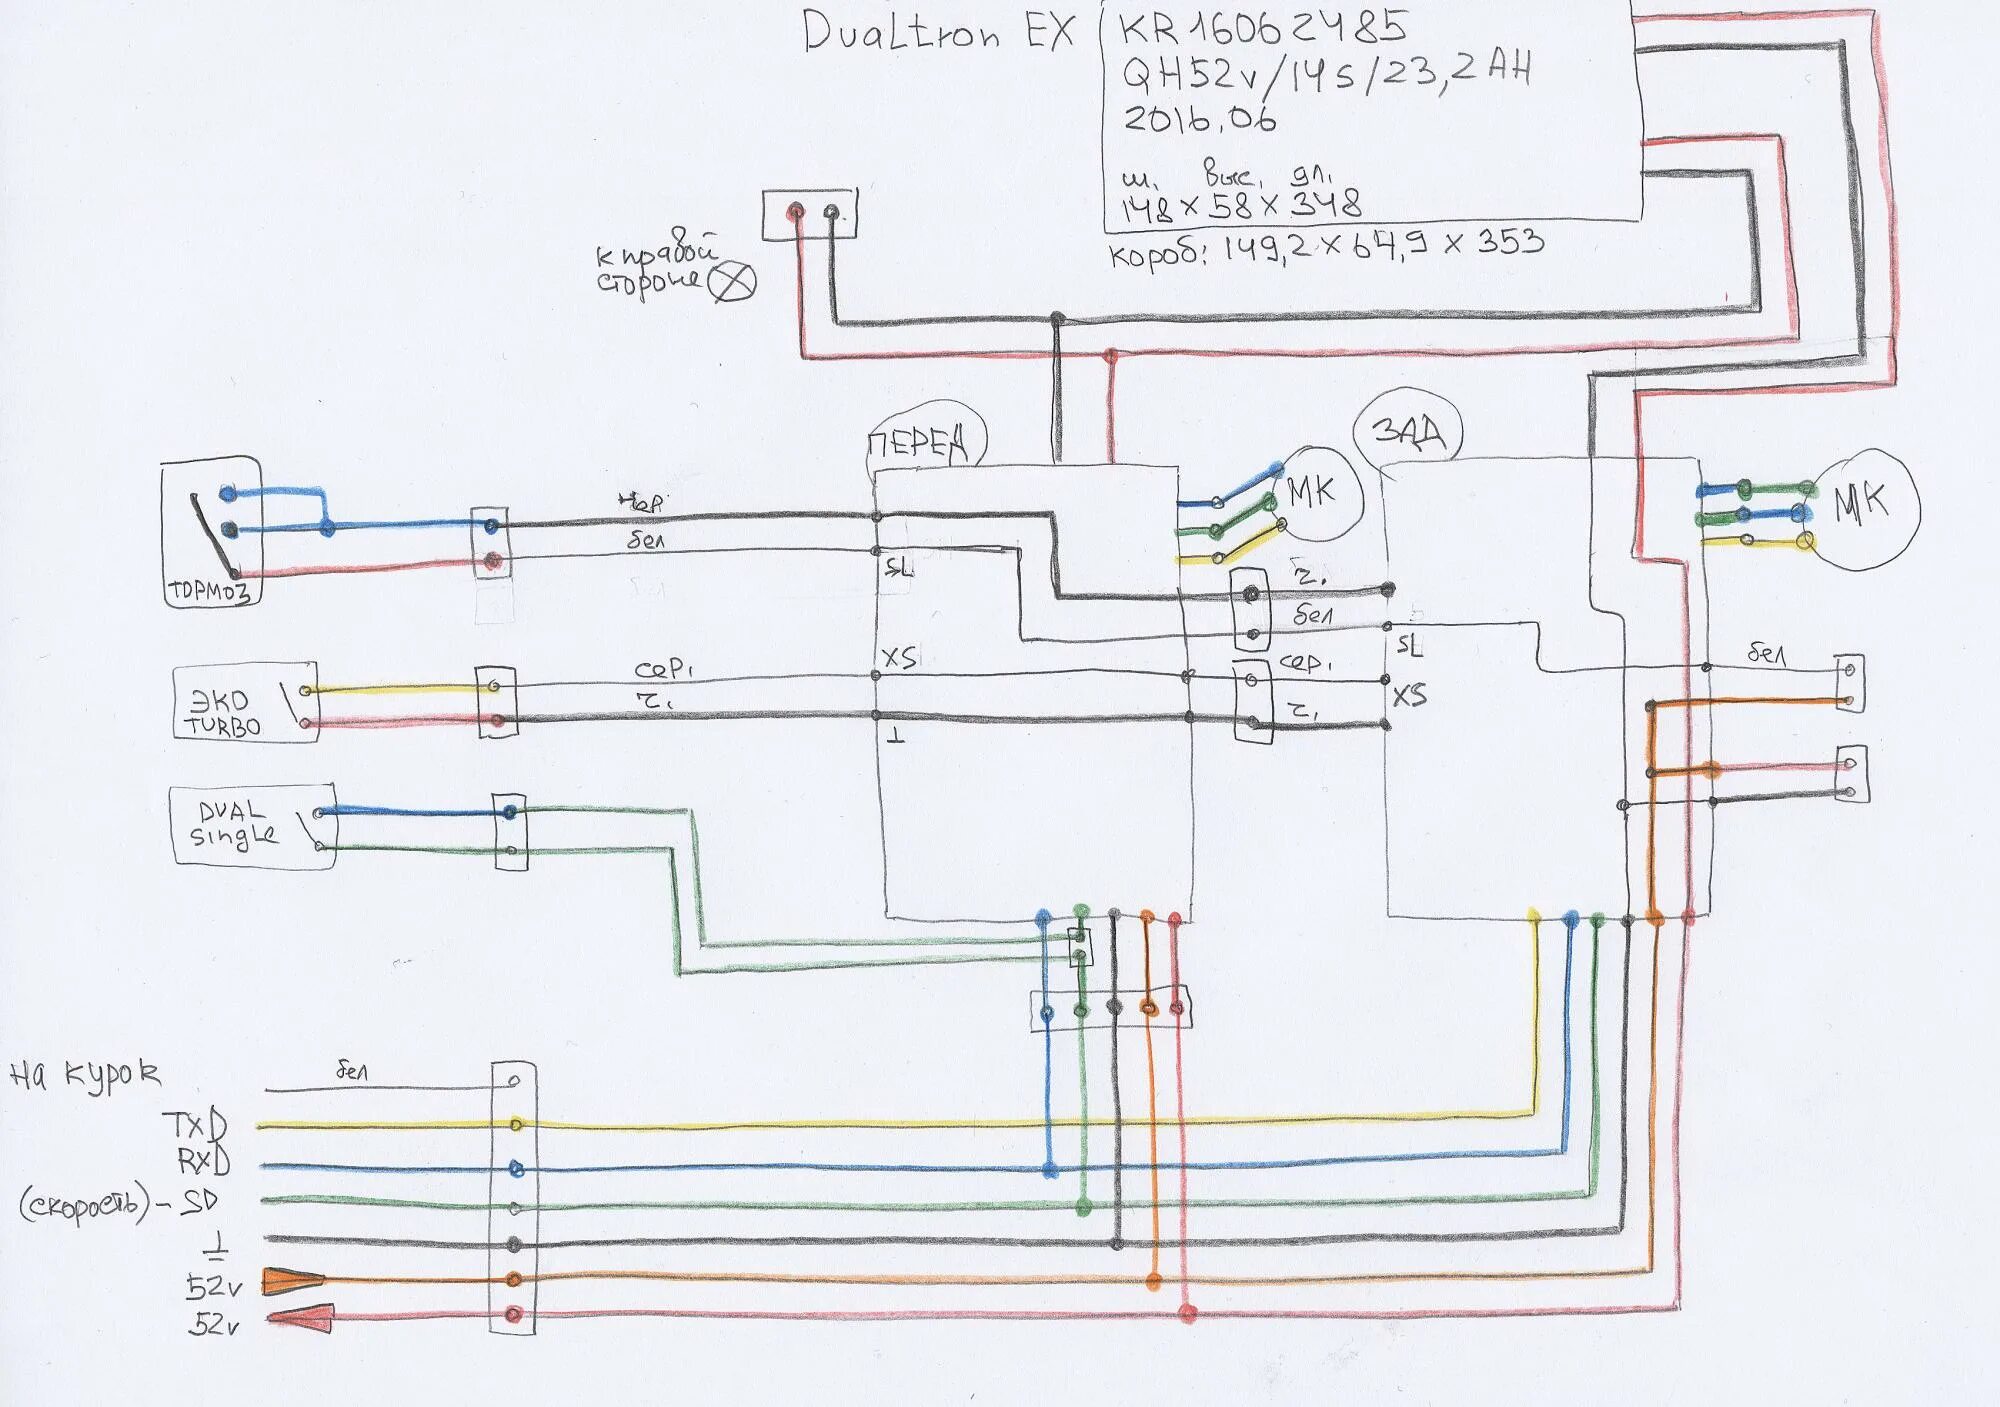 Dualtron EX
KR16062485
QH52v/14s/23,2AH
2016,06
ш. выс, дл,
148 x 58 x 348
короб: 149,2 x 64,9 x 353
к правой
стороне
ПЕРЕД
ЗАД
МК
МК
чер.
бел
SL
ТОРМОЗ
ч.
бел
SL
XS
сер,
ч.
сер,
ч.
XS
бел
ЭКО
TURBO
⊥
DUAL
single
на курок
бел
TXD
RXD
(скорость) - SD
⊥
52v
52v